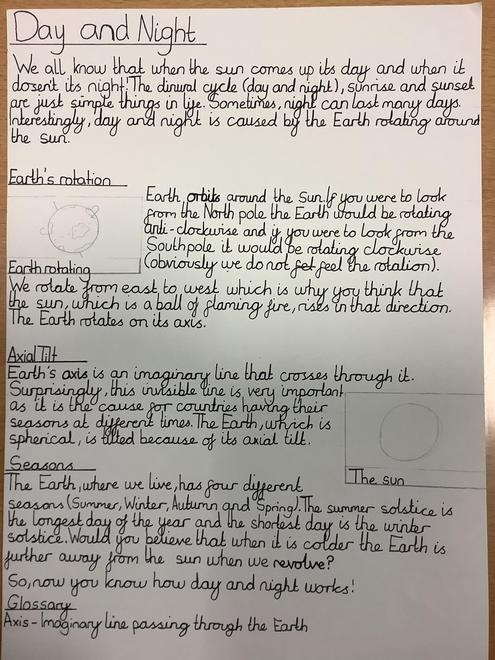 Day and Night
We all know that when the sun comes up its day and when it
dosen't its night! The dirual cycle (day and night), sunrise and sunset
are just simple things in life. Sometimes, night can last many days.
Interestingly, day and night is caused by the Earth rotating around
the sun.
Earth's rotation
Earth orbits around the Sun. If you were to look
from the North pole the Earth would be rotating
anti-clockwise and if you were to look from the
South pole it would be rotating clockwise
(obviously we do not feel the rotation).
Earth rotating
We rotate from east to west which is why you think that
the sun, which is a ball of flaming fire, rises in that direction.
The Earth rotates on its axis.
Axial Tilt
Earth's axis is an imaginary line that crosses through it.
Surprisingly, this invisible line is very important
as it is the cause for countries having their
seasons at different times. The Earth, which is
spherical, is tilted because of its axial tilt.
The sun
Seasons
The Earth, where we live, has four different
seasons (Summer, Winter, Autumn and Spring). The summer solstice is
the longest day of the year and the shortest day is the winter
solstice. Would you believe that when it is colder the Earth is
further away from the sun when we revolve?
So, now you know how day and night works!
Glossary
Axis - Imaginary line passing through the Earth